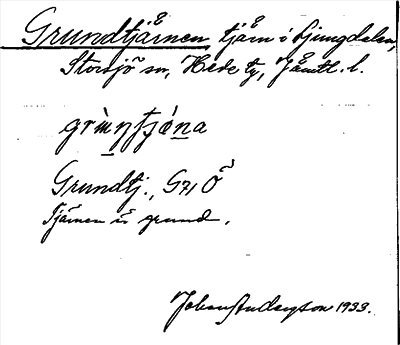 Grundtjärnen tjärn i Ljungdalen,
Storsjö sn, Hede tg, Jämtl. l.
Grundtj., G71 Ö
Tjärnen är grund.
Johan Anderson 1933.